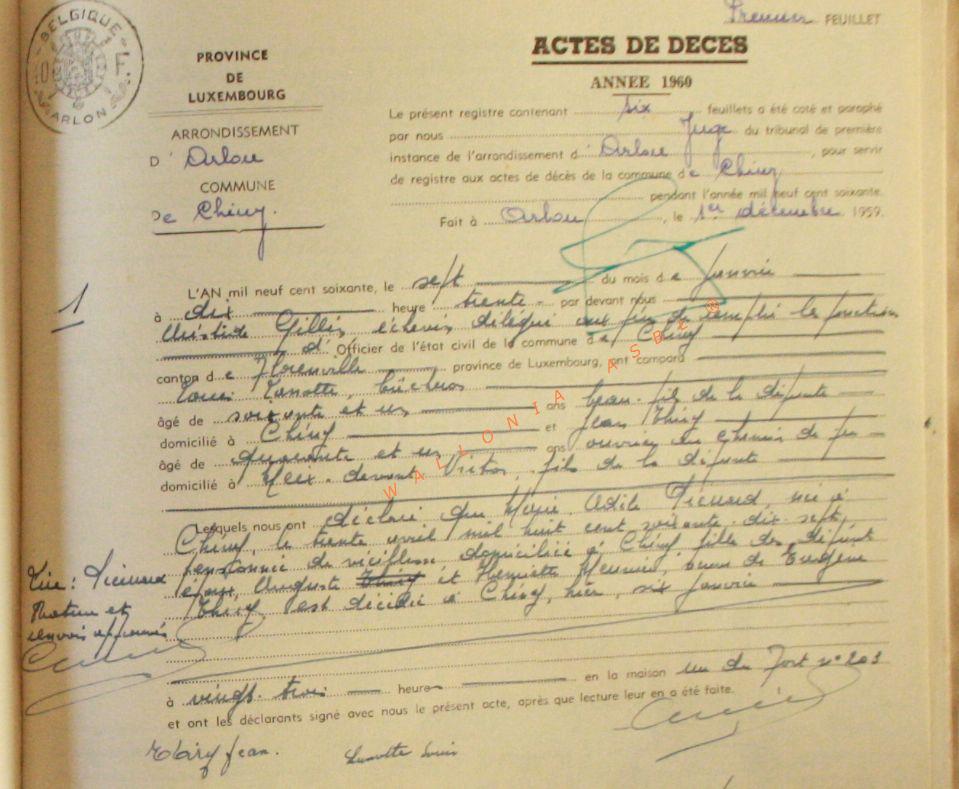 BELGIQUE
ARLON
Premier FEUILLET
PROVINCE
DE
LUXEMBOURG
ARRONDISSEMENT
D' Arlon
COMMUNE
De Chiny.
ACTES DE DECES
ANNEE 1960
Le présent registre contenant six feuillets a été coté et paraphé
par nous Juge du tribunal de première
instance de l'arrondissement d' Arlon, pour servir
de registre aux actes de décès de la commune de Chiny
pendant l'année mil neuf cent soixante.
Fait à Arlon, le 1er décembre 1959.
1
L'AN mil neuf cent soixante, le sept du mois de janvier
à dix heure trente par devant nous
Gillis, échevin délégué aux fins de remplir les fonctions
d' Officier de l'état civil de la commune de Chiny
canton de Florenville province de Luxembourg, ont comparu
Louis Lanotte, bûcheron
âgé de soixante et un ans beau-fils de la défunte
domicilié à Chiny et Jean Thiry
âgé de quarante et un ans ouvrier au chemin de fer
domicilié à Meix-devant-Virton, fils de la défunte
Lesquels nous ont déclaré que Marie Adile, née à
Chiny, le trente avril mil huit cent soixante-dix-sept,
pensionnée de vieillesse domiciliée à Chiny fille des défunts
époux, Auguste Thiry et Henriette, veuve de Eugène
Thiry est décédée à Chiny, hier, six janvier
Lire:
renvois approuvés
à vingt-trois heures en la maison rue du Fort n° 203
et ont les déclarants signé avec nous le présent acte, après que lecture leur en a été faite.
Thiry Jean. Lanotte Louis
WALLONIA ASBL ®